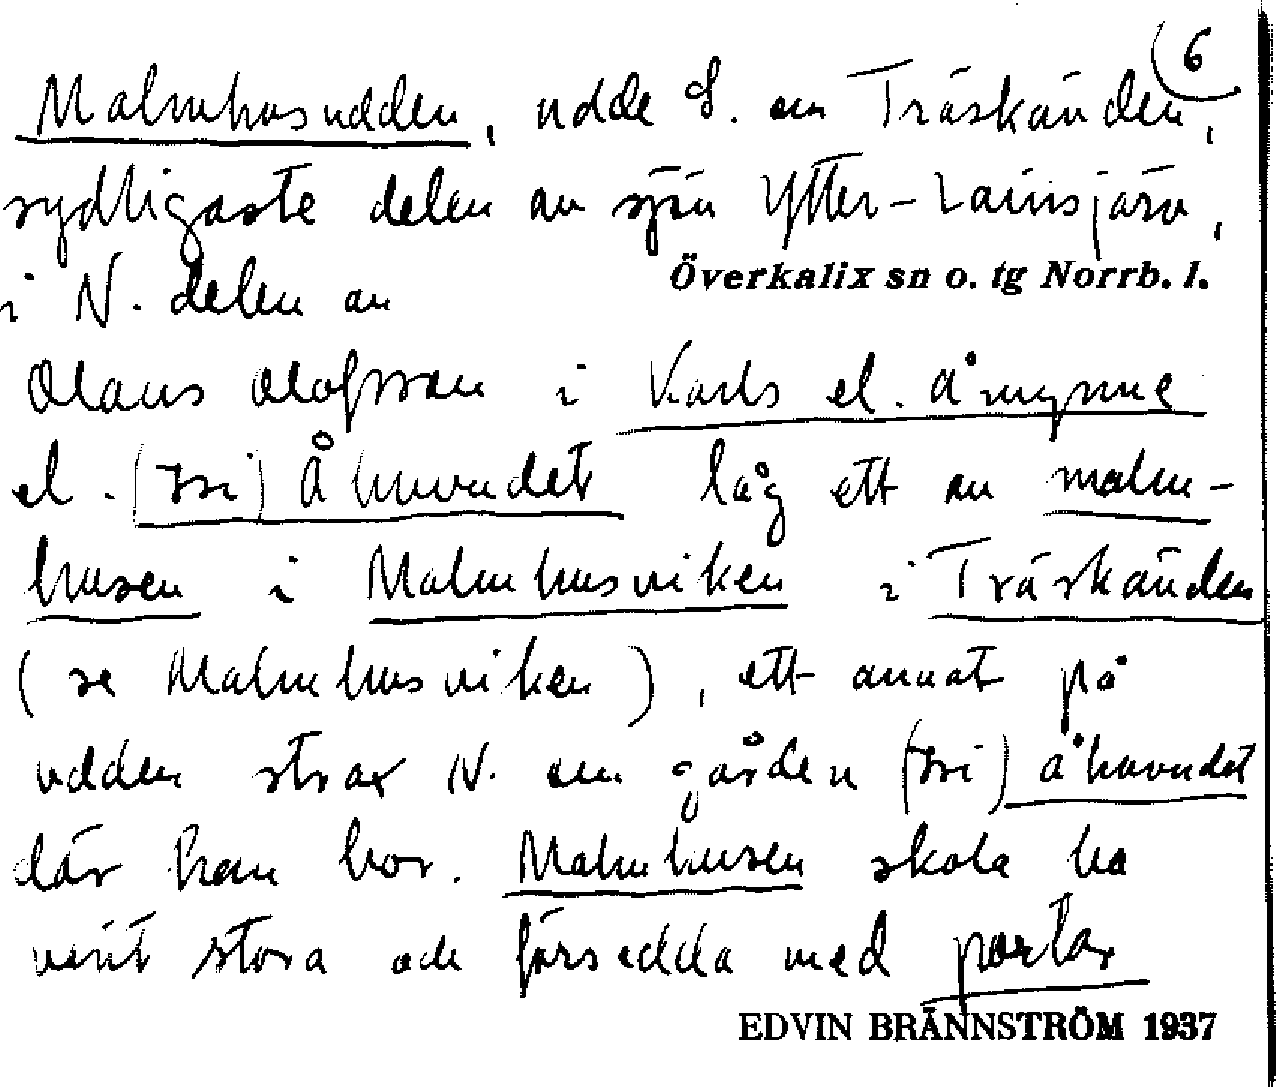 6
Malmhusudden, udde S. om Träskänden,
sydligaste delen av sjön Ytter-Lainsjärv,
i N. delen av
Överkalix sn o. tg Norrb. l.
Olaus Olofsson i Karls el. Åmynne
el. (Tsi) Åhuvudet låg ett av malm-
husen i Malmhusviken i Träskänden
(se Malmhusviken), ett annat på
udden strax N. om gården (Tsi) Åhuvudet
där han bor. Malmhusen skola ha
varit stora och försedda med portar
EDVIN BRÄNNSTRÖM 1937